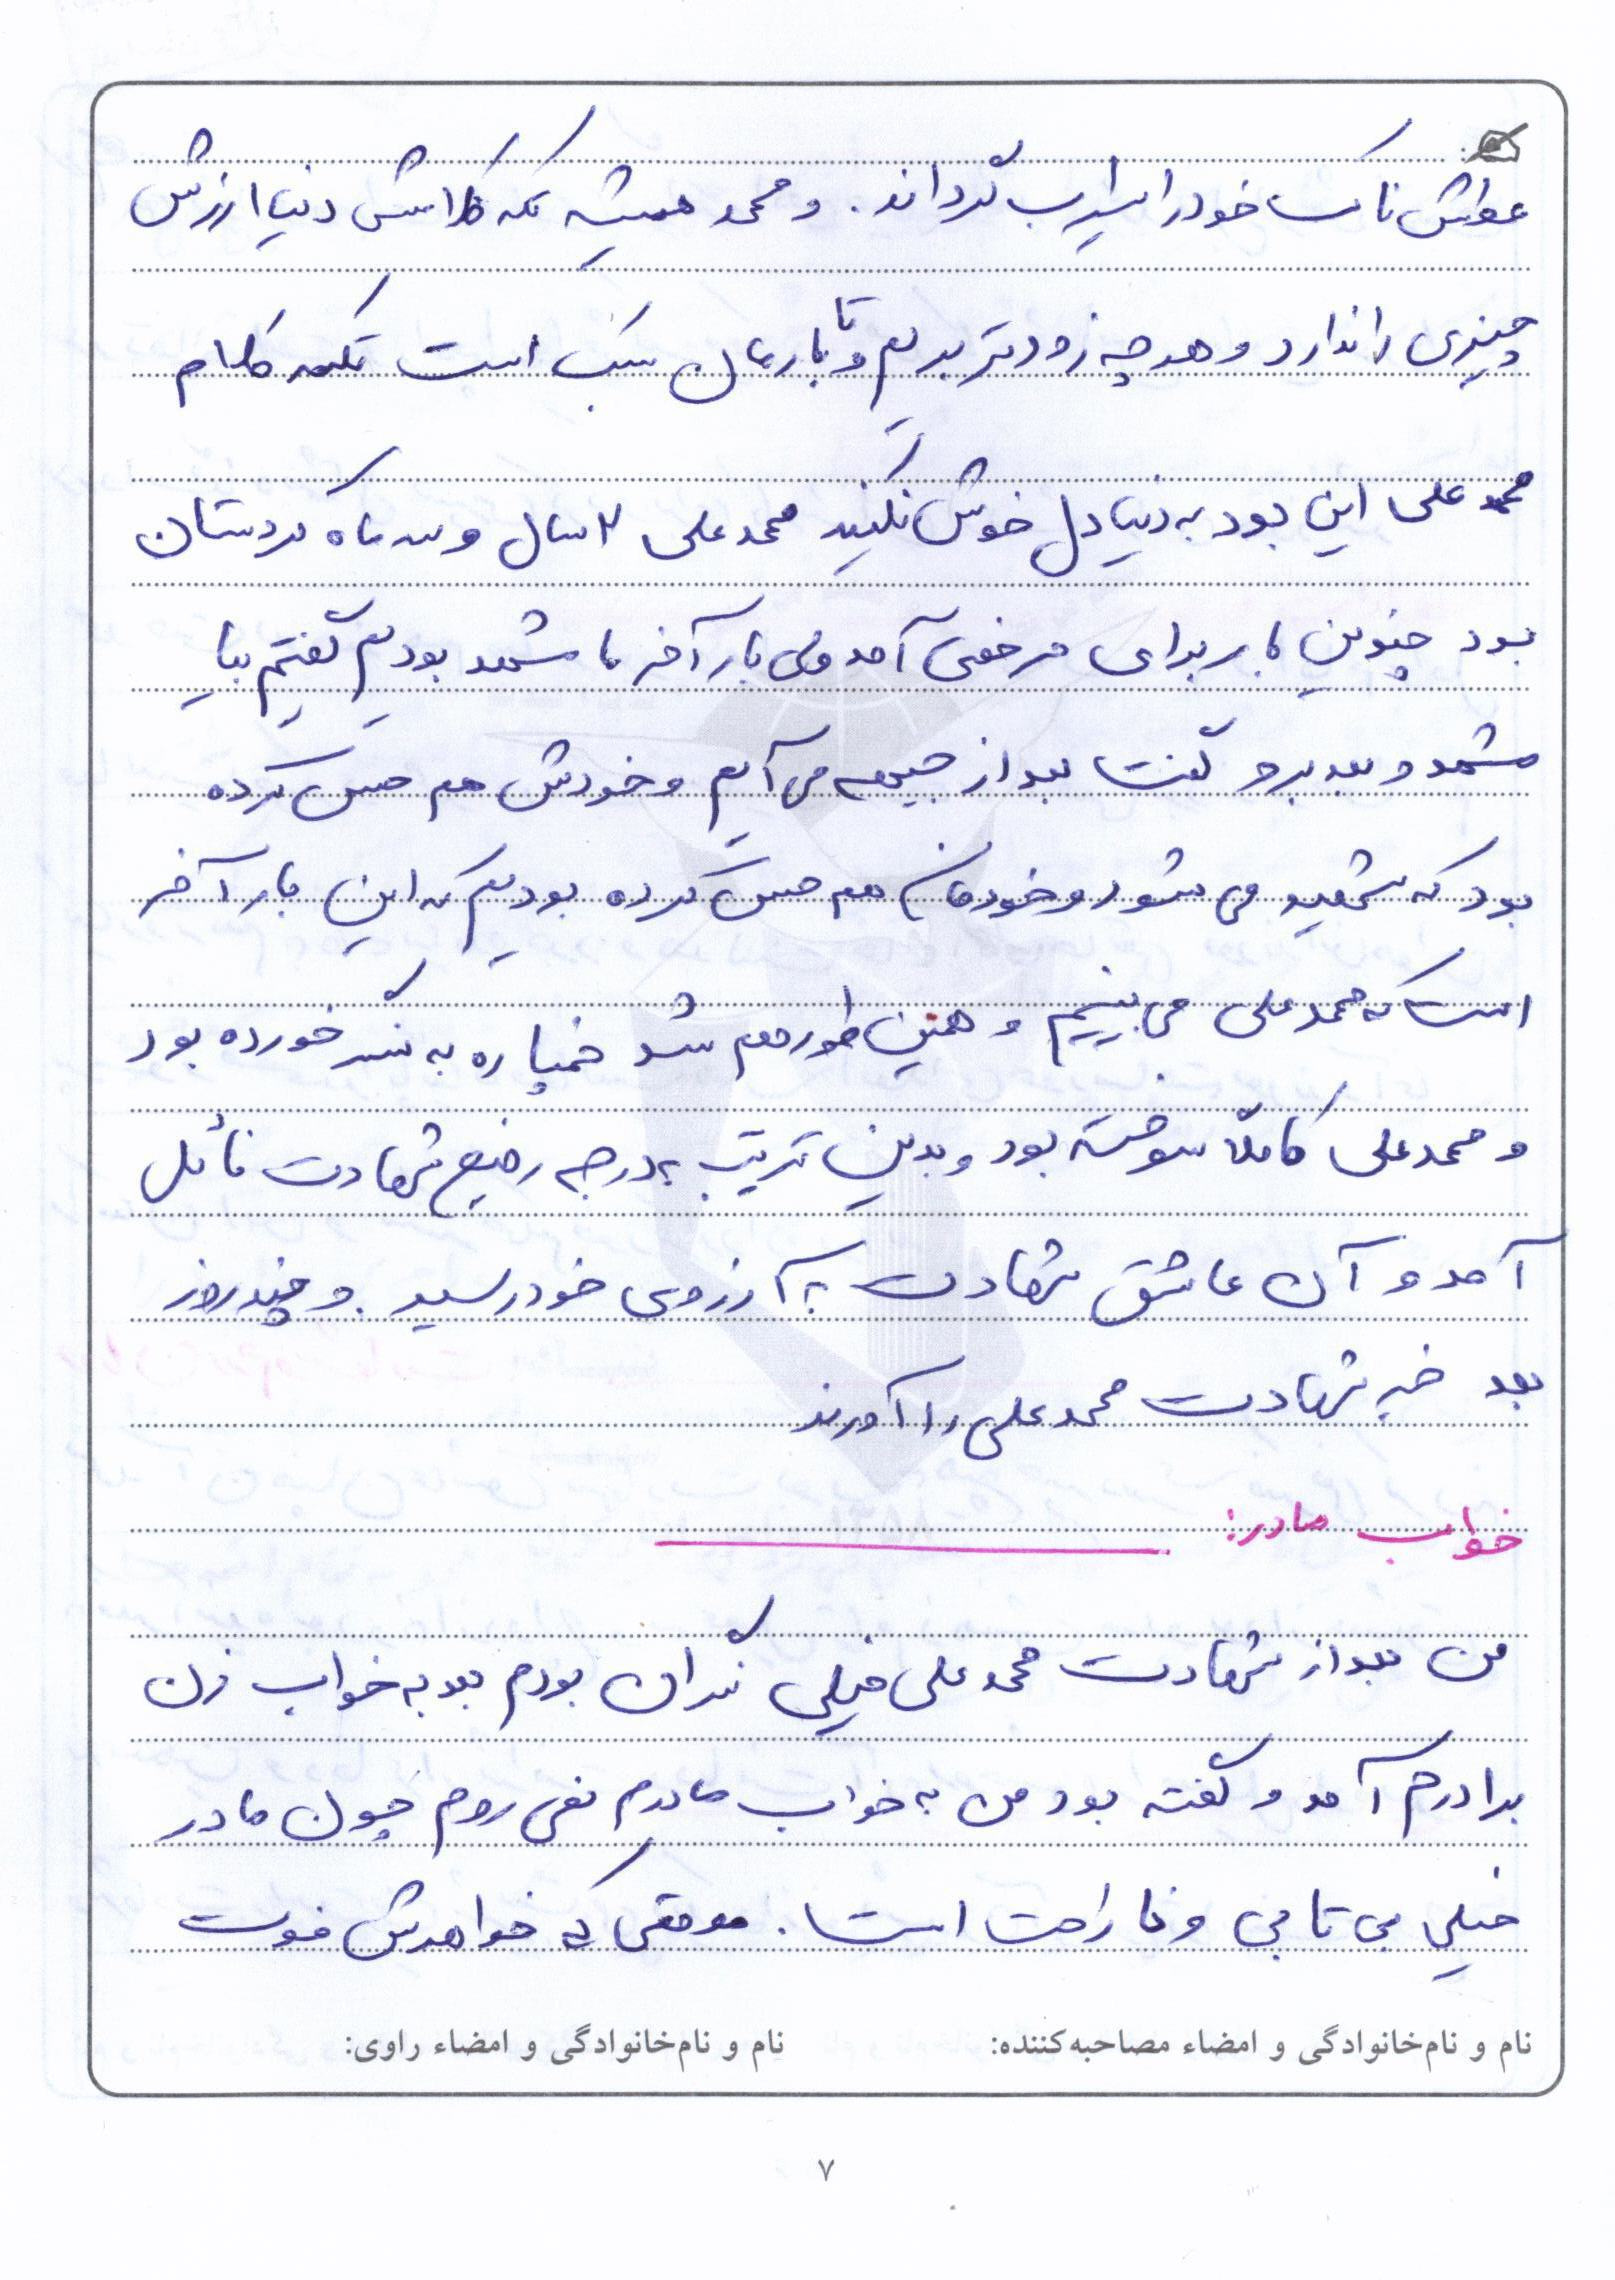 عطش ناک خود را سیراب گرداند. و محمد همیشه تکه کلامش دنیا ارزش
چیزی را ندارد و هر چه زودتر برویم و تا بارمان سبک است تکمه کلام
محمد علی این بود به دنیا دل خوش نکنید محمد علی ۲ سال و سه ماه کردستان
بود چندین بار برای مرخصی آمد ولی بار آخر ما مشهد بودیم گفتیم بیا
مشهد و بعد برو گفت بعد از جبهه می آیم و خودش هم حس کرده
بود که شهید می شود و خودمان هم حس کرده بودیم که این بار آخر
است که محمد علی می بینیم و همین طور هم شد خمپاره به سنگر خورده بود
و محمد علی کاملاً سوخته بود و بدین ترتیب به درجه رفیع شهادت نائل
آمد و آن عاشق شهادت به آرزوی خود رسید. و چند روز
بعد خبر شهادت محمد علی را آوردند
خواب مادر:
من بعد از شهادت محمد علی خیلی نگران بودم بعد به خواب زن
برادرم آمد و گفته بود من به خواب مادرم نمی روم چون مادر
خیلی بی تابی و ناراحت است. موقعی که خواهرش فوت
نام و نام‌خانوادگی و امضاء مصاحبه‌کننده:
نام و نام‌خانوادگی و امضاء راوی:
۷